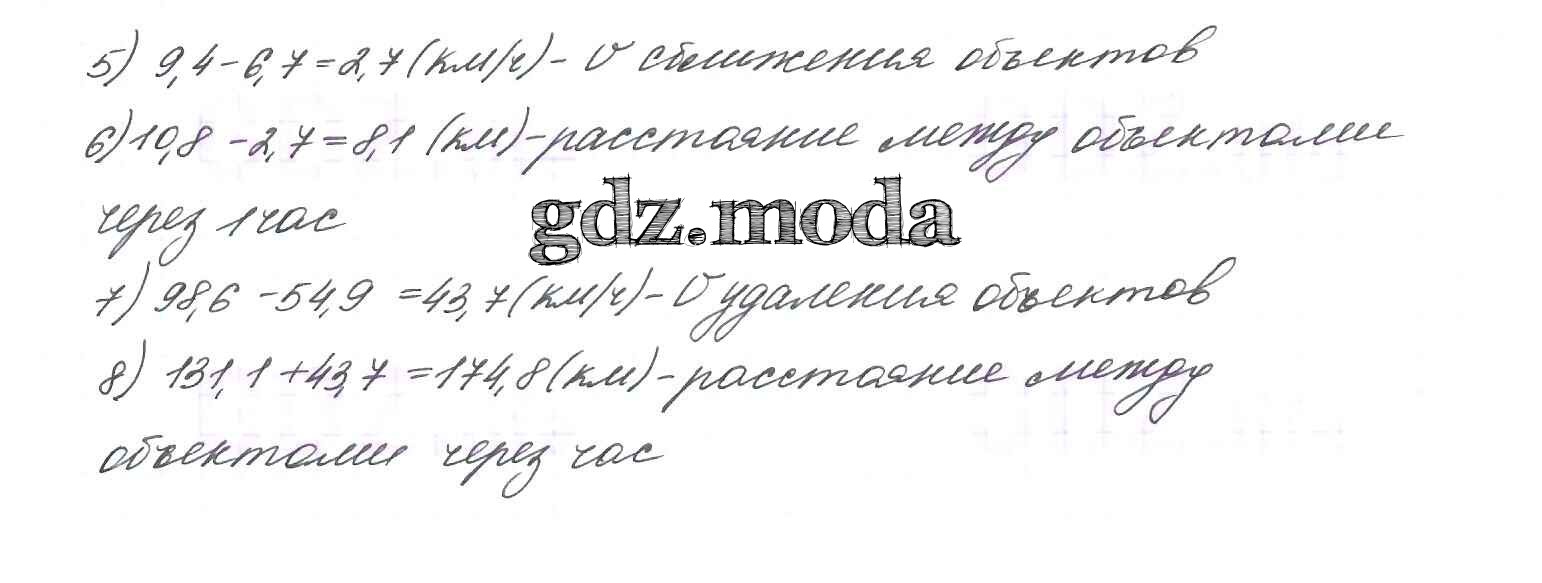 5) 9,4 - 6,7 = 2,7 (км/ч) - v сближения объектов
6) 10,8 - 2,7 = 8,1 (км) - расстояние между объектами
через 1 час
gdz.moda
7) 98,6 - 54,9 = 43,7 (км/ч) - v удаления объектов
8) 131,1 + 43,7 = 174,8 (км) - расстояние между
объектами через час